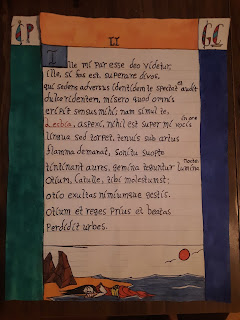 LI
Ille mi par esse deo videtur,
ille, si fas est, superare divos,
qui sedens adversus identidem te spectat et audit
dulce ridentem, misero quod omnis
eripit sensus mihi; nam simul te,
Lesbia, aspexi, nihil est super mi vocis in ore
lingua sed torpet, tenuis sub artus
flamma demanat, sonitu suopte
tintinant aures, gemina teguntur lumina nocte.
Otium, Catulle, tibi molestumst:
otio exultas nimiumque gestis.
Otium et reges Prius et beatas
Perdidit urbes.